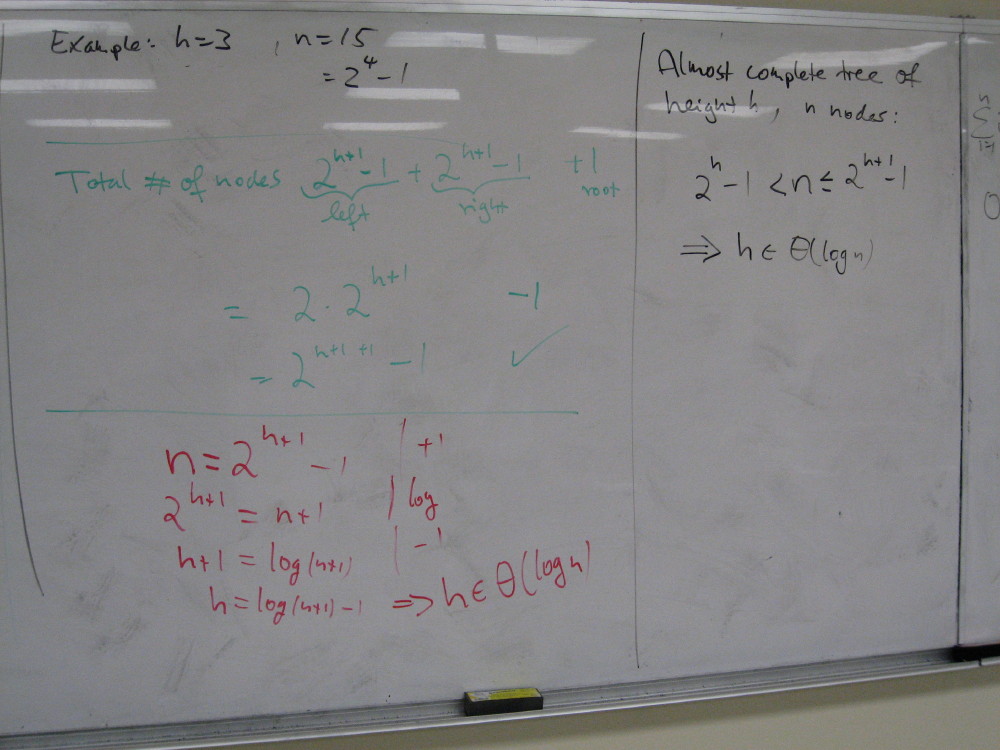 Example: h=3 , n=15
= 2^4 - 1
Total # of nodes 2^{h+1} - 1 + 2^{h+1} - 1 +1
left right root
= 2 · 2^{h+1} -1
= 2^{h+1+1} - 1 ✓
n = 2^{h+1} - 1 | +1
2^{h+1} = n+1 | log
h+1 = log(n+1) | -1
h = log(n+1) - 1 ⇒ h ∈ Θ(log n)
Almost complete tree of
height h, n nodes:
2^h - 1 < n ≤ 2^{h+1} - 1
⇒ h ∈ Θ(log n)
n
Σ